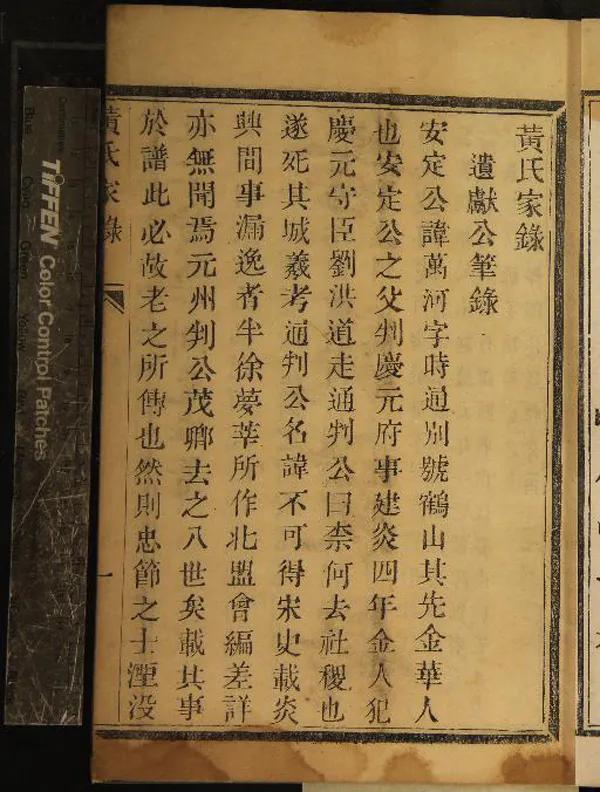 黃氏家錄
遺獻公筆錄
安定公諱萬河字時通別號鶴山其先金華人
也安定公之父判慶元府事建炎四年金人犯
慶元守臣劉洪道走通判公曰柰何去社稷也
遂死其城羲考通判公名諱不可得宋史載炎
興間事漏逸者半徐夢莘所作北盟會編差詳
亦無聞焉元州判公茂卿去之八世矣載其事
於譜此必故老之所傳也然則忠節之士湮没
黃氏家錄
一
TIFFEN Color Control Patches